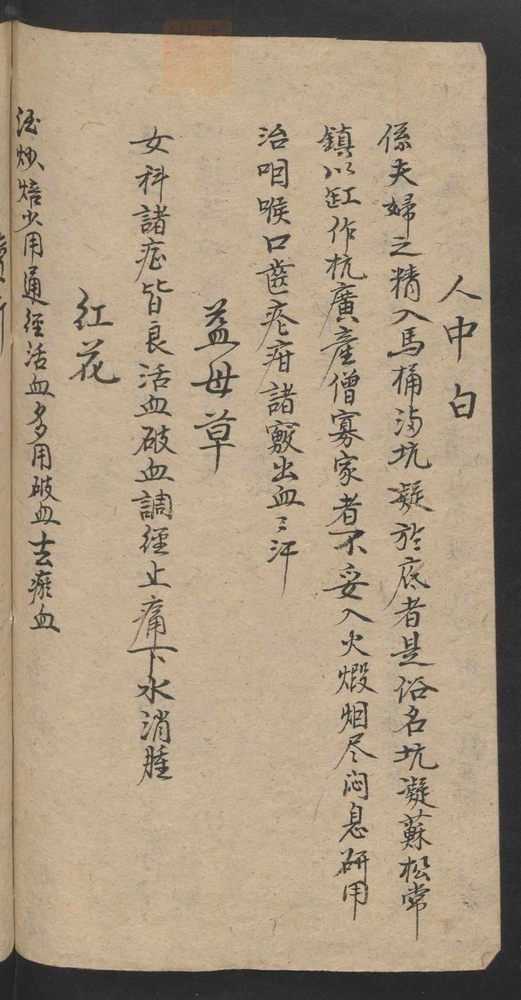 人中白
係夫婦之精入馬桶溺坑凝於底者是俗名坑凝蘇松常
鎮以缸作坑廣產僧寡家者不妥入火煅烟尽闷息研用
治咽喉口齒疮疳諸竅出血三汗
益母草
女科諸症皆良活血破血調經止痛下水消腫
红花
酒炒焙少用通經活血多用破血去瘀血